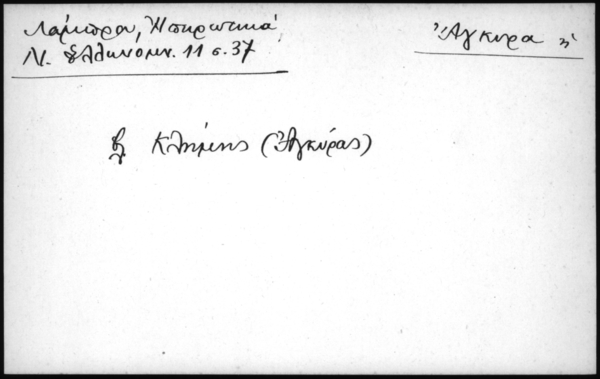 Λάμπρου, Ἠπειρωτικά
Ν. Ἑλληνομν. 11 σ. 37
Ἄγκυρα, ἡ
βλ Κλήμης (Ἀγκύρας)